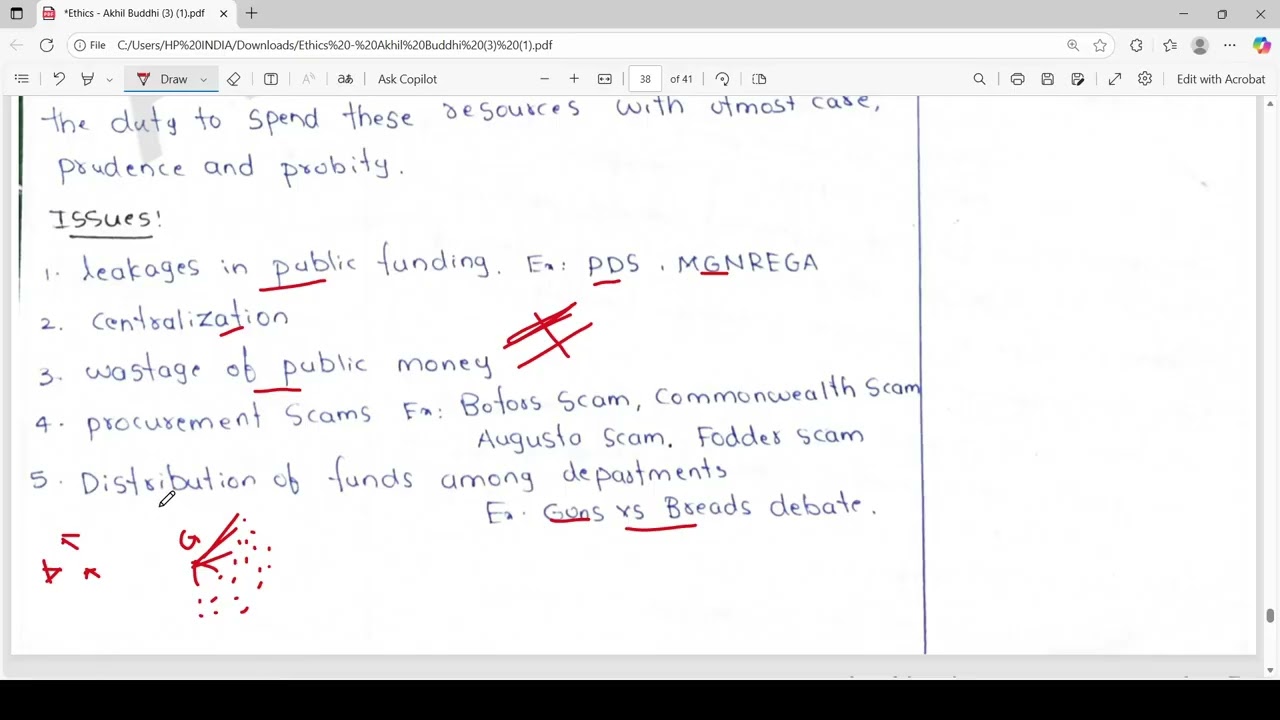 *Ethics - Akhil Buddhi (3) (1).pdf
File C:/Users/HP%20INDIA/Downloads/Ethics%20-%20Akhil%20Buddhi%20(3)%20(1).pdf
Draw Ask Copilot 38 of 41 Edit with Acrobat
the duty to spend these resources with utmost care,
prudence and probity.
Issues!
1. leakages in public funding. Ex: PDS, MGNREGA
2. Centralization
3. wastage of public money
4. procurement Scams Ex: Bofors Scam, Commonwealth Scam
Augusta Scam. Fodder scam
5. Distribution of funds among departments
Ex. Guns vs Breads debate.
G